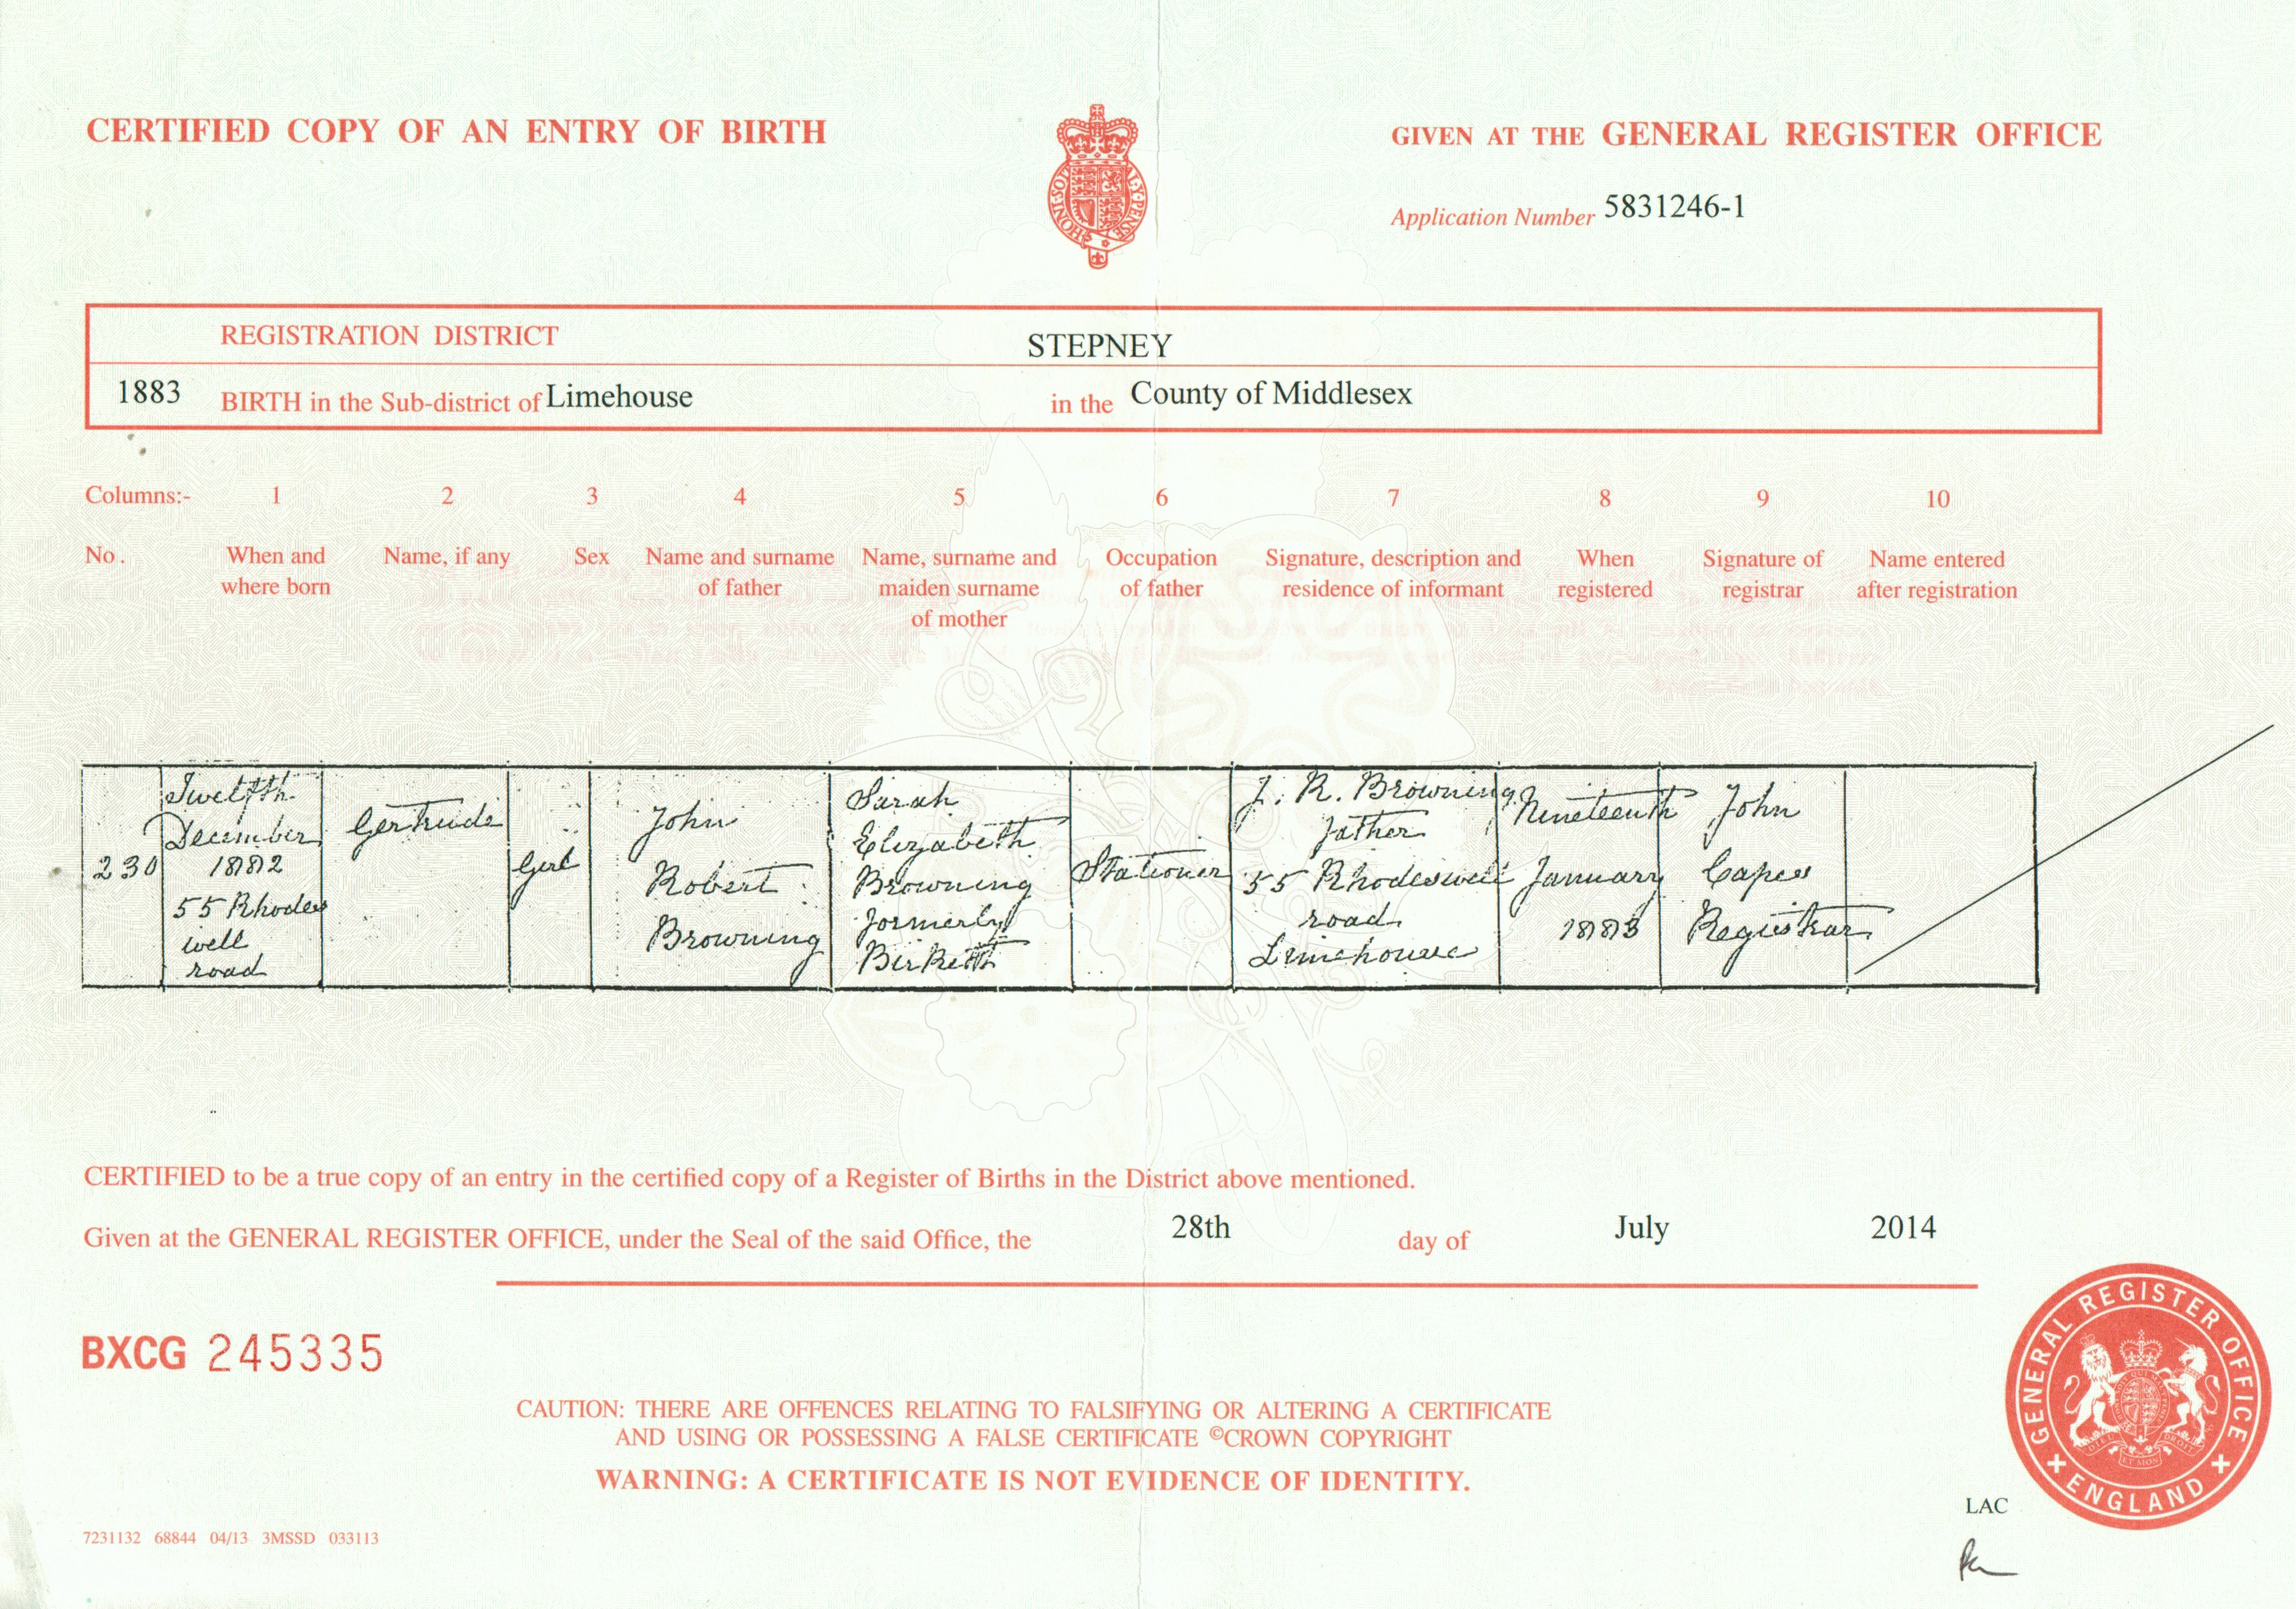 CERTIFIED COPY OF AN ENTRY OF BIRTH
GIVEN AT THE GENERAL REGISTER OFFICE
HONI·SOI
AL·Y·PENSE
Application Number 5831246-1
REGISTRATION DISTRICT STEPNEY
1883 BIRTH in the Sub-district of Limehouse in the County of Middlesex
Columns:- 1 2 3 4 5 6 7 8 9 10
No. When and where born
Name, if any
Sex
Name and surname of father
Name, surname and maiden surname of mother
Occupation of father
Signature, description and residence of informant
When registered
Signature of registrar
Name entered after registration
230
Twelfth
December
1882
55 Rhodes
well
road
Gertrude
Girl
John
Robert
Browning
Sarah
Elizabeth
Browning
formerly
Birkett
Stationer
J. R. Browning
Father
55 Rhodeswell
road
Limehouse
Nineteenth
January
1883
John
Capes
Registrar
CERTIFIED to be a true copy of an entry in the certified copy of a Register of Births in the District above mentioned.
Given at the GENERAL REGISTER OFFICE, under the Seal of the said Office, the 28th day of July 2014
BXCG 245335
CAUTION: THERE ARE OFFENCES RELATING TO FALSIFYING OR ALTERING A CERTIFICATE
AND USING OR POSSESSING A FALSE CERTIFICATE ©CROWN COPYRIGHT
WARNING: A CERTIFICATE IS NOT EVIDENCE OF IDENTITY.
GENERAL REGISTER OFFICE
ENGLAND
LAC
7231132 68844 04/13 3MSSD 033113